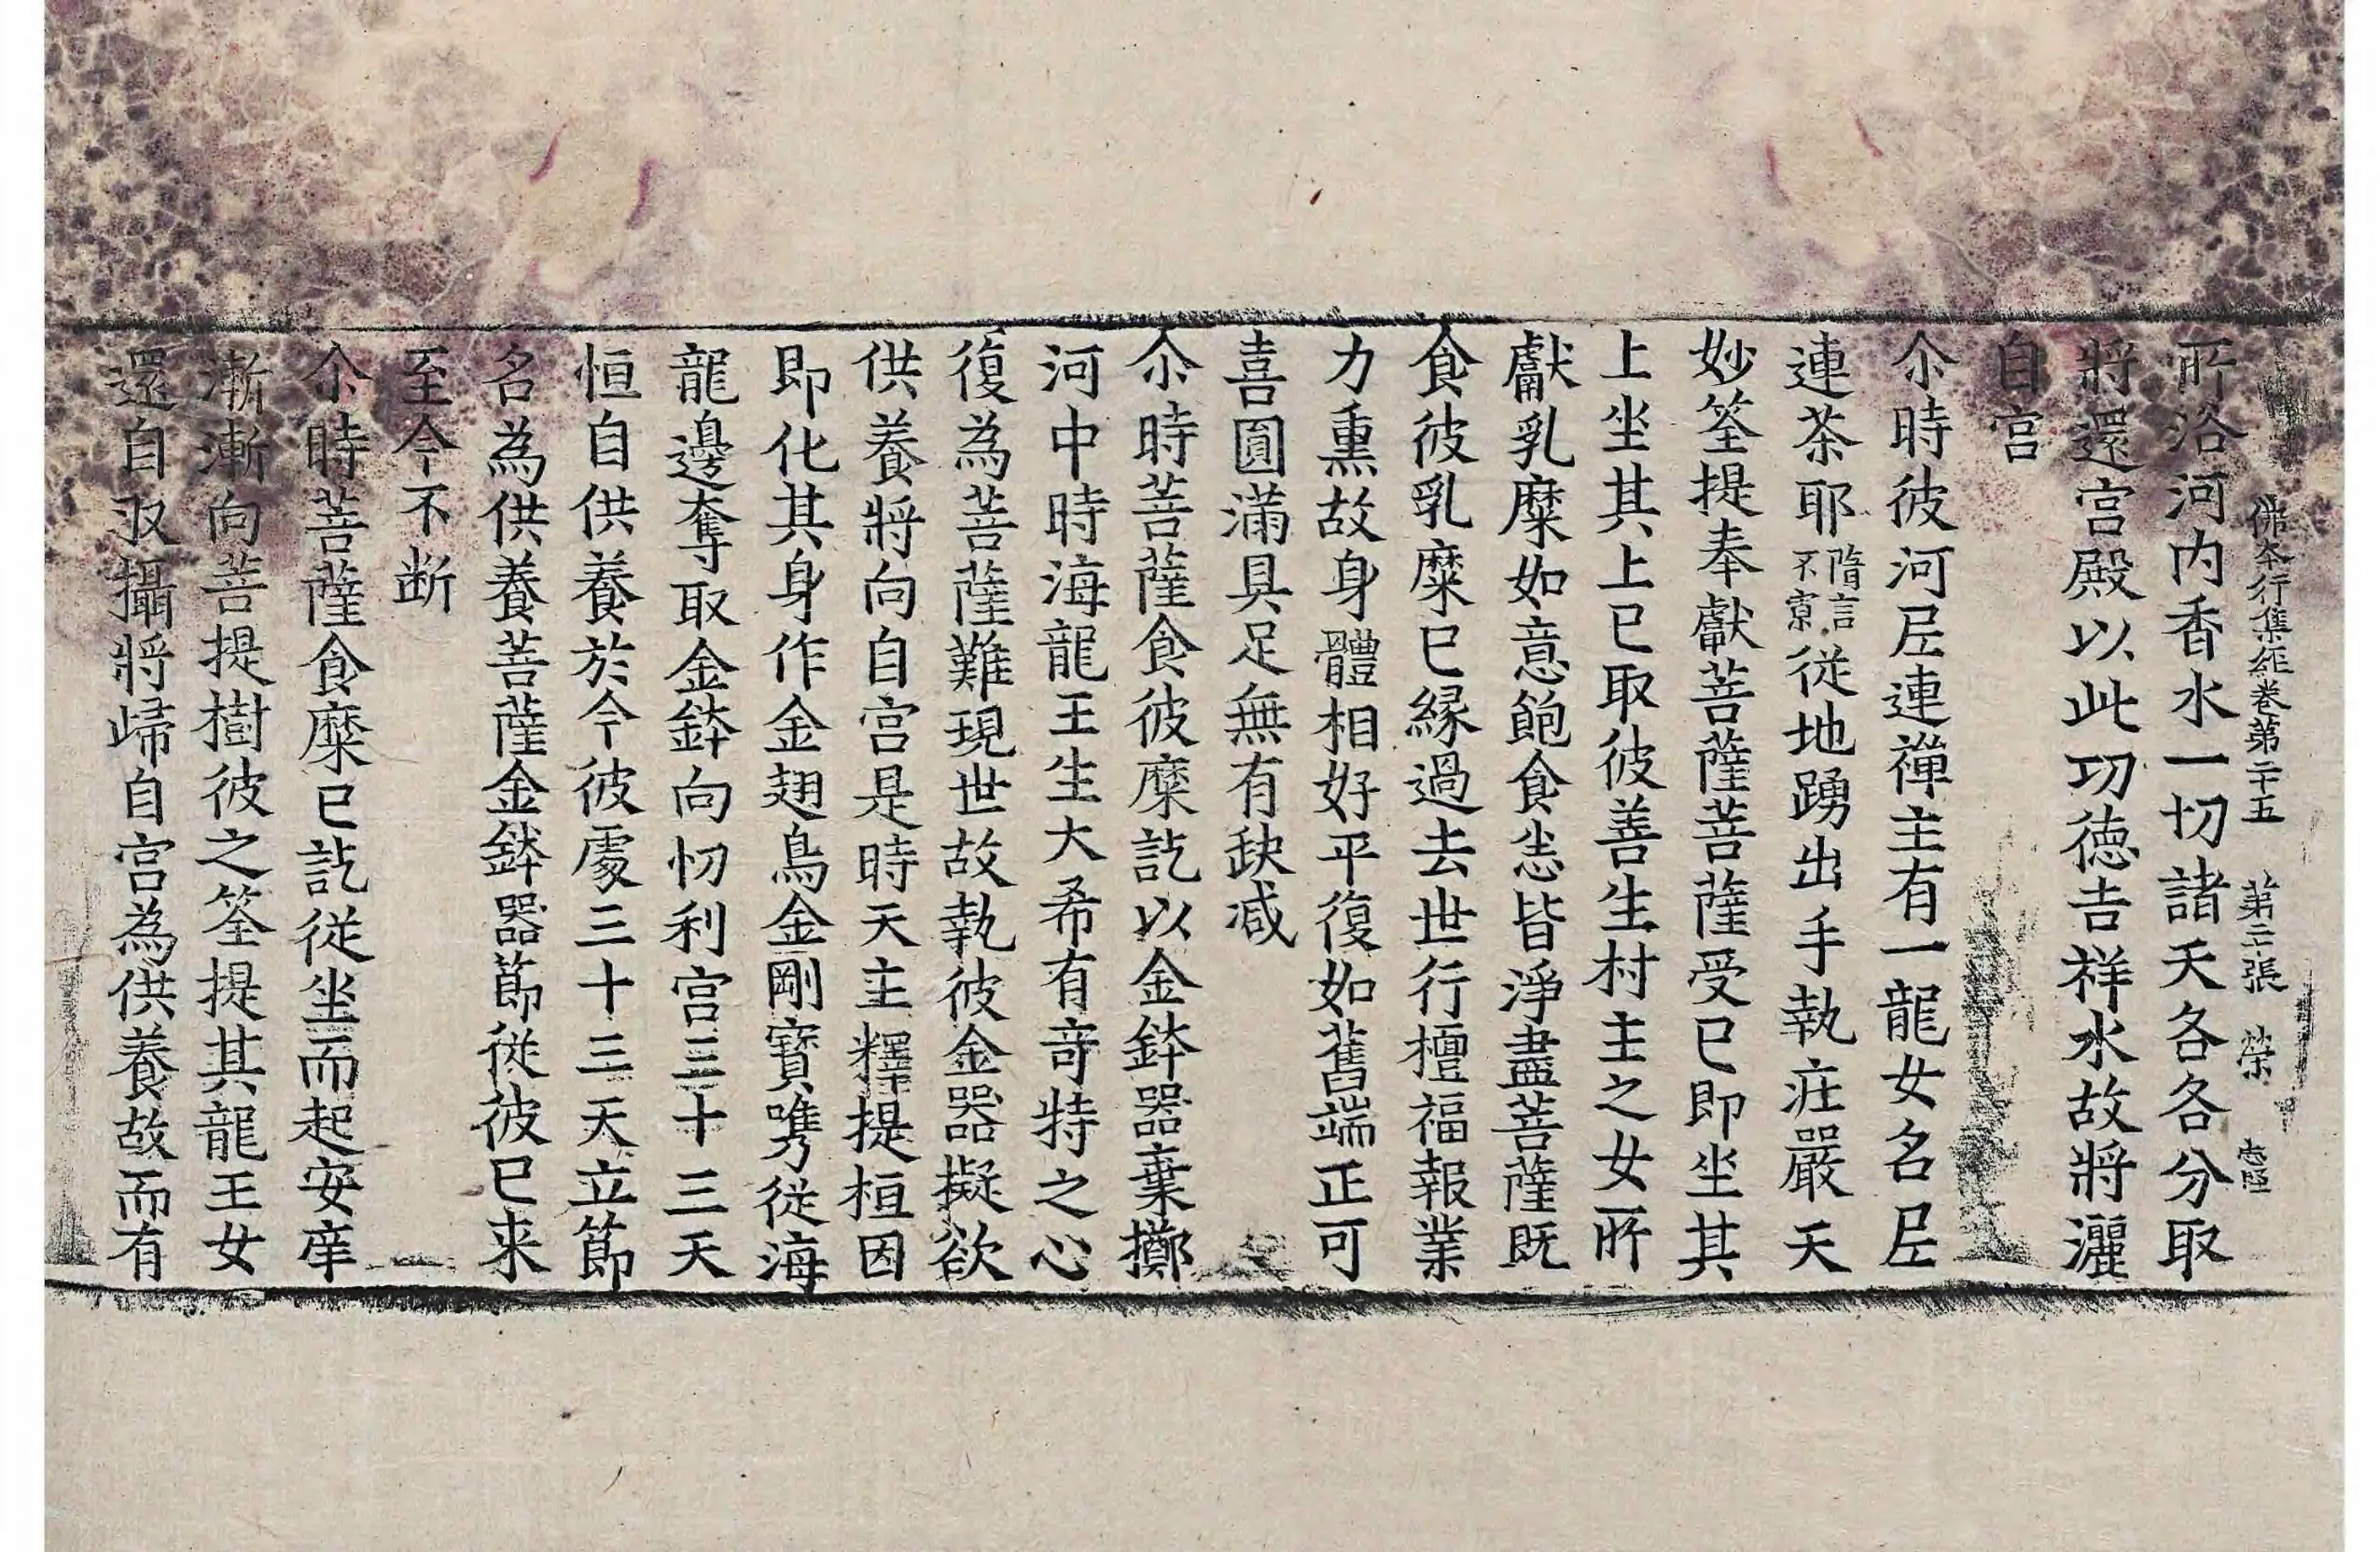 佛本行集經卷第二十五 第二張 榮
所洛河内香水一切諸天各各分取
將還宫殿以此功德吉祥水故將灑
自宫
尒時彼河𡰱連禪主有一龍女名𡰱
連茶耶隋言不寮從地踴出手執庄嚴天
妙筌提奉獻菩薩菩薩受已即坐其
上坐其上已取彼善生村主之女所
獻乳糜如意飽食悉皆淨盡菩薩既
食彼乳糜已緣過去世行檀福報業
力熏故身體相好平復如舊端正可
喜圓滿具足無有缺减
尒時菩薩食彼糜訖以金鉢器棄擲
河中時海龍王生大希有竒特之心
復為菩薩難現世故執彼金器擬欲
供養將向自宫是時天主釋提桓因
即化其身作金翅鳥金剛寶嘴從海
龍邊奪取金鉢向忉利宫三十三天
恒自供養於今彼處三十三天立節
名為供養菩薩金鉢器節從彼已来
至今不断
尒時菩薩食糜已訖從坐而起安庠
漸漸向菩提樹彼之筌提其龍王女
還自収攝將歸自宫為供養故而有